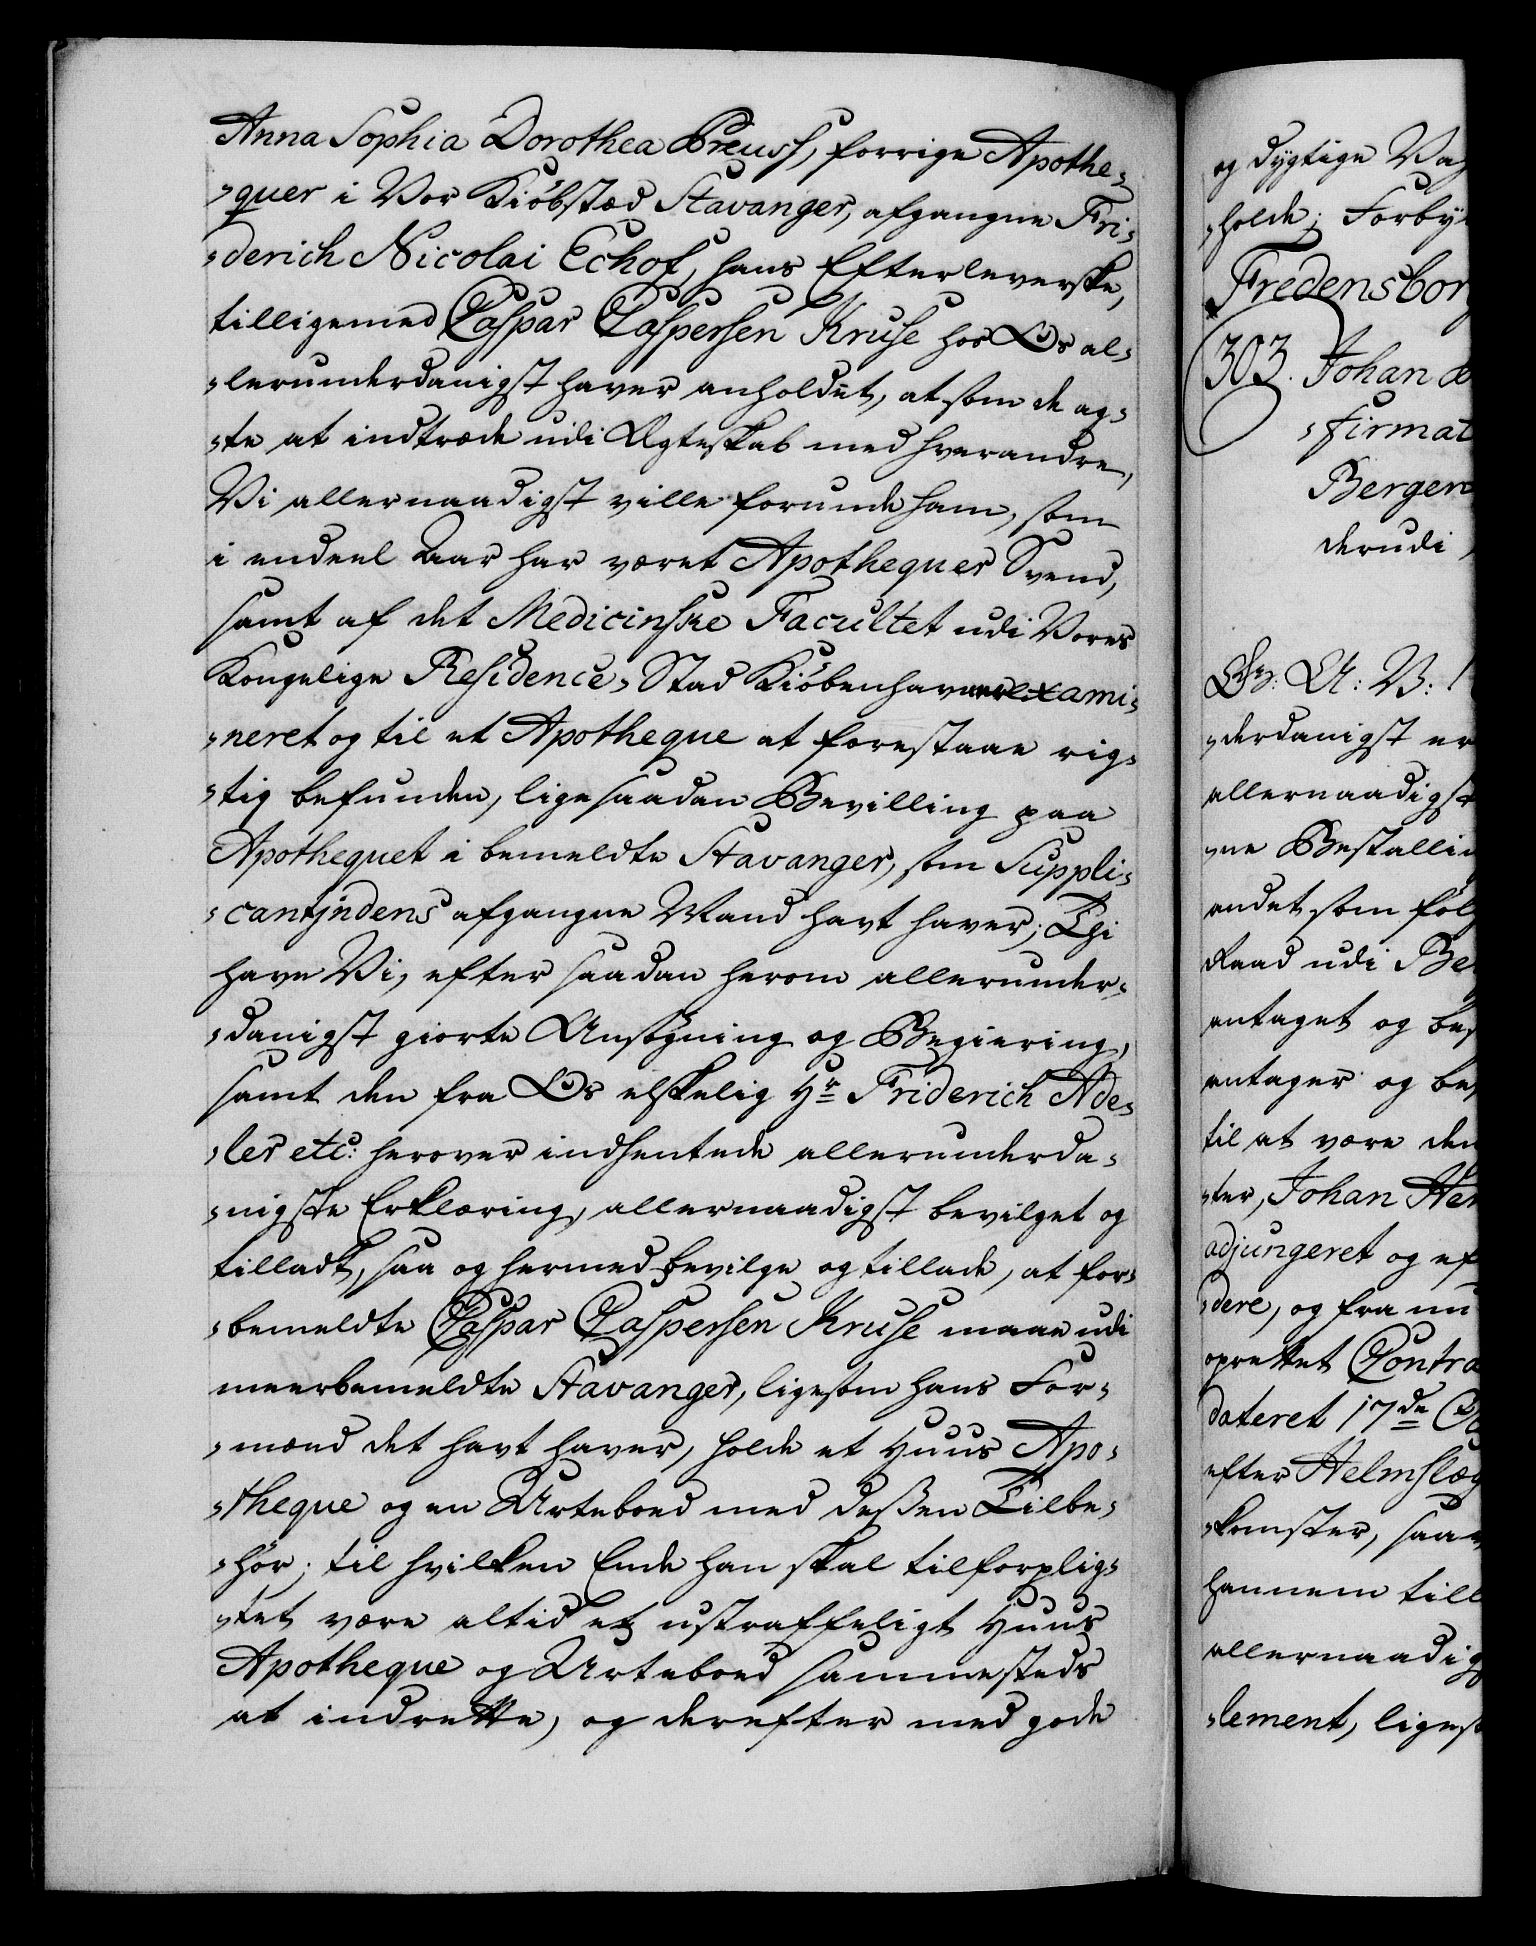 Anna Sophia Dorothea Preuss, forrige Apothe-
-quer i Vor Kiöbstæd Stavanger, afgangne Fri-
-derich Nicolai Echof, hans Efterleverske,
tilligemed Caspar Caspersen Kruse hos Os al-
-lerunderdanigst haver anholdet, at som de ag-
-te at indtræde udi Ægteskab med hverandre,
Vi allernaadigst ville forunde ham, som
i endeel Aar har været Apothequer Svend,
samt af det Medicinske Facultet udi Vores
Kongelige Residence-Stad Kiöbenhavn exami-
-neret og til et Apotheque at forestaae rig-
-tig befunden, ligesaadan Bevilling paa
Apothequet i bemeldte Stavanger, som Suppli-
-cantjndens afgangne Mand havt haver; Thi
have Vi, efter saadan herom allerunder-
-danigst giorte Ansögning og Begiering,
samt den fra Os elskelig Hr Friderich Ade-
-ler etc: herover indhentede allerunderda-
-nigste Erklæring, allernaadigst bevilget og
tilladt, saa og hermed bevilge og tillade, at for-
-bemeldte Caspar Caspersen Kruse maae udi
meerbemeldte Stavanger, ligesom hans For-
-mænd det havt haver, holde et Huus Apo-
-theque og en Urteboed med dessen Tilbe-
-hör; til hvilken Ende han skal tilforplig-
-tet være altid et ustraffeligt Huus
Apotheque og Urteboed sammesteds
at indrette, og derefter med gode
og dygtige Va
-holde; Forby
Fredensbor
303. Johan
-firmat
Bergen
derudi
Gr: A: V:
-derdanigst er
allernaadigst
-ne Bestalli
andet som föl
Raad udi Be
antaget og bes
antager og be
til at være den
-ter, Johan Hen
adjungeret og ef
-dere, og fra nu
oprettet Contra
dateret 17de
efter Helmslæg
-komster, saa
hannem till
allernaadig
-lement, ligest